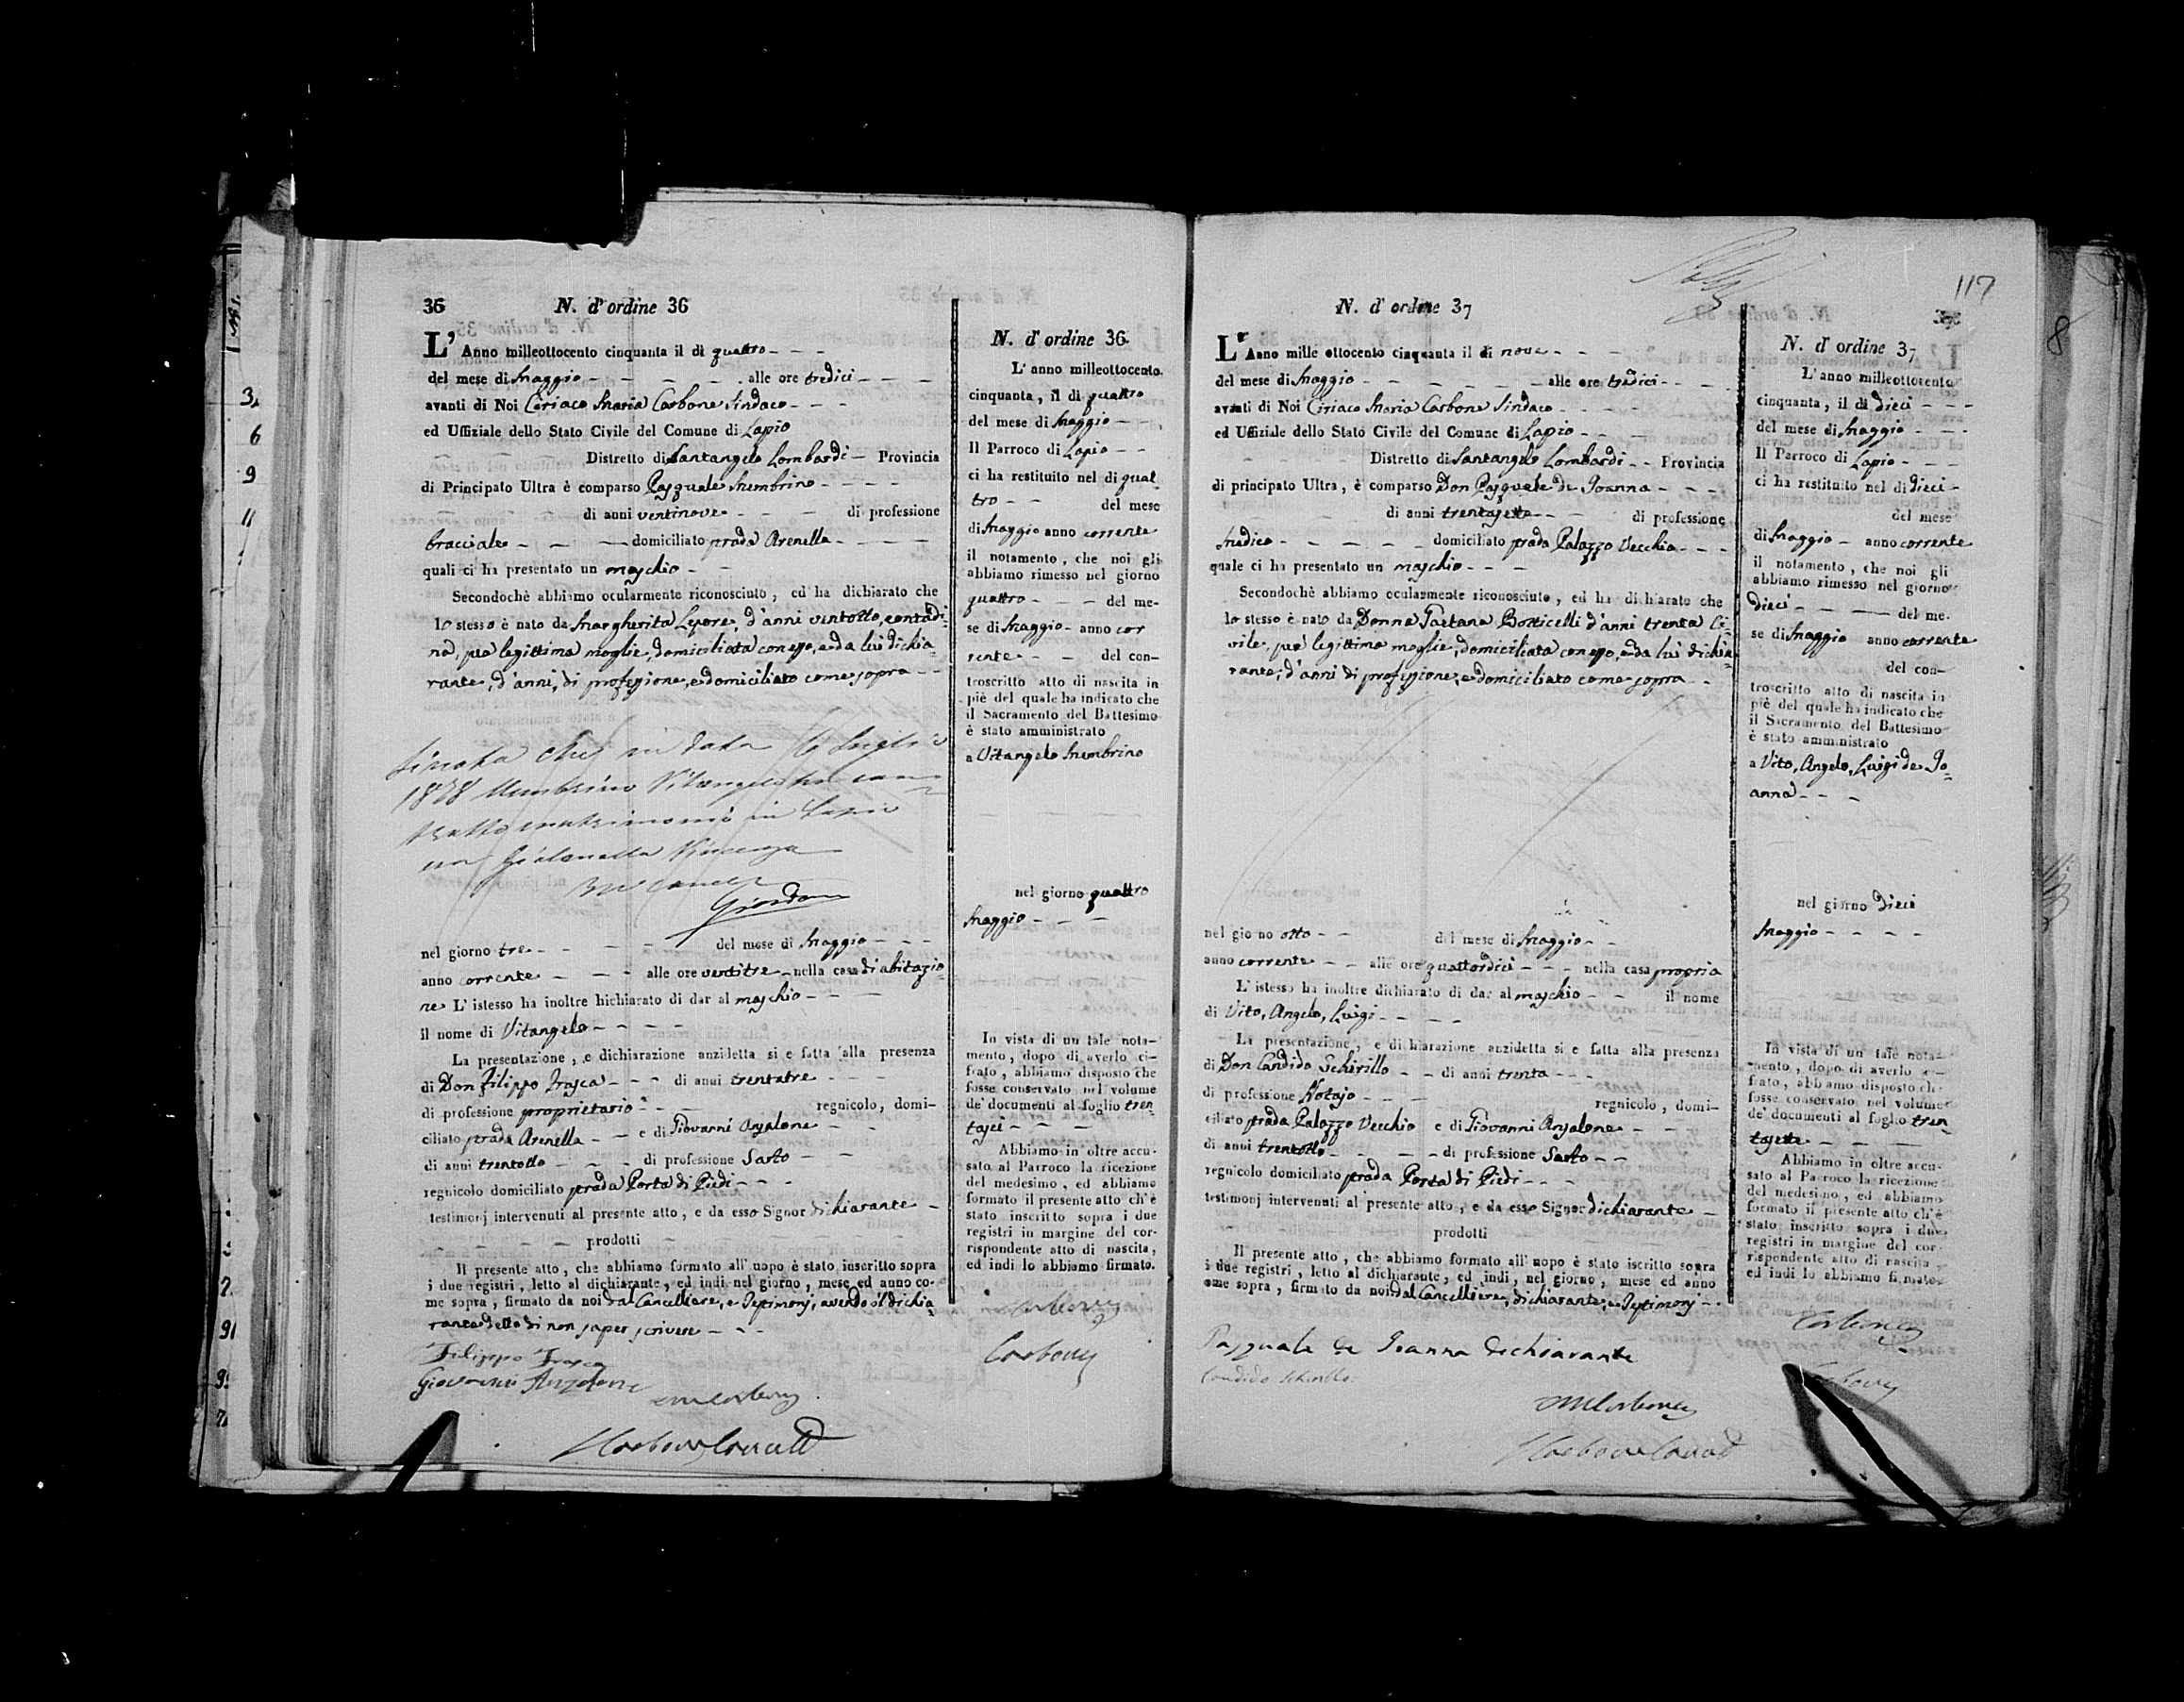 36
N. d' ordine 36
L' Anno milleottocento cinquanta il di quattro
del mese di Maggio alle ore tredici
avanti di Noi Ciriaco Maria Carbone Sindaco
ed Uffiziale dello Stato Civile del Comune di Lapio
Distretto di Santangelo Lombardi Provincia
di Principato Ultra è comparso Pasquale Membrino
di anni ventinove di professione
bracciale domiciliato strada Arenella
quali ci ha presentato un maschio
Secondochè abbiamo ocularmente riconosciuto, ed ha dichiarato che
lo stesso è nato da Margherita Lepore, d'anni ventotto, contadi=
na, sua legittima moglie, domiciliata con esso, e da lui dichia=
rante, d'anni, di professione, e domiciliato come sopra
Si nota che in data 6 Luglio
1878 Membrino Vitangelo ha con=
tratto matrimonio in Lapio
con Vincenza
Giordano
nel giorno tre del mese di Maggio
anno corrente alle ore ventitre nella casa di abitazio=
ne L' istesso ha inoltre hichiarato di dar al maschio
il nome di Vitangelo
La presentazione, e dichiarazione anzidetta si e fatta alla presenza
di Don Filippo Trosca di anni trentatre
di professione proprietario regnicolo, domi-
ciliato strada Arenella e di Giovanni Anzalone
di anni trentotto di professione Sarto
regnicolo domiciliato strada Porta di Piedi
testimonj intervenuti al presente atto, e da esso Signor dichiarante
prodotti
Il presente atto, che abbiamo formato all' uopo è stato inscritto sopra
i due registri, letto al dichiarante, ed indi nel giorno, mese ed anno co-
me sopra, firmato da noi dal Cancelliere, e Testimonj, avendo il dichia=
rante detto di non saper scrivere
Filippo Trosca
Giovanni Anzalone
N. d' ordine 36
L' anno milleottocento
cinquanta, il di quattro
del mese di Maggio
Il Parroco di Lapio
ci ha restituito nel di quat
tro del mese
di Maggio anno corrente
il notamento, che noi gli
abbiamo rimesso nel giorno
quattro del me-
se di Maggio anno cor
rente del con-
troscritto atto di nascita in
piè del quale ha indicato che
il Sacramento del Battesimo
è stato amministrato
a Vitangelo Membrino
nel giorno quattro
Maggio
In vista di un tale nota-
mento, dopo di averlo ci-
frato, abbiamo disposto che
fosse conservato nel volume
de' documenti al foglio tren
tasei
Abbiamo in oltre accu-
sato al Parroco la ricezione
del medesimo, ed abbiamo
formato il presente atto ch'è
stato inscritto sopra i due
registri in margine del cor-
rispondente atto di nascita,
ed indi lo abbiamo firmato.
Carbone
117
37
N. d' ordine 37
L' Anno mille ottocento cinquanta il di nove
del mese di Maggio alle ore tredici
avanti di Noi Ciriaco Maria Carbone Sindaco
ed Uffiziale dello Stato Civile del Comune di Lapio
Distretto di Santangelo Lombardi Provincia
di principato Ultra, è comparso Don Pasquale de Joanna
di anni trentasette di professione
Medico domiciliato strada Palazzo Vecchio
quale ci ha presentato un maschio
Secondochè abbiamo ocularmente riconosciuto, ed ha dichiarato che
lo stesso è nato da Donna Gaetana Botticelli d'anni trenta Ci=
vile, sua legittima moglie, domiciliata con esso, e da lui dichia=
rante, d'anni di professione, e domiciliato come sopra
nel giorno otto del mese di Maggio
anno corrente alle ore quattordici nella casa propria
L' istesso ha inoltre dichiarato di dar al maschio il nome
di Vito, Angelo, Luigi
La presentazione, e dichiarazione anzidetta si e fatta alla presenza
di Don Candido Schirillo di anni trenta
di professione Notajo regnicolo, domi-
ciliato strada Palazzo Vecchio e di Giovanni Anzalone
di anni trentotto di professione Sarto
regnicolo domiciliato strada Porta di Piedi
testimonj intervenuti al presente atto, e da esso Signor dichiarante
prodotti
Il presente atto, che abbiamo formato all' uopo è stato iscritto sopra
i due registri, letto al dichiarante, ed indi, nel giorno, mese ed anno
ome sopra, firmato da noi dal Cancelliere, dichiarante, e Testimonj
Pasquale de Joanna dichiarante
Candido Schirillo
N. d' ordine 37
L' anno milleottocento
cinquanta, il di dieci
del mese di Maggio
Il Parroco di Lapio
ci ha restituito nel di dieci
del mese
di Maggio anno corrente
il notamento, che noi gli
abbiamo rimesso nel giorno
dieci del me-
se di Maggio anno corrente
del con-
troscritto atto di nascita in
piè del quale ha indicato che
il Sacramento del Battesimo
è stato amministrato
a Vito, Angelo, Luigi de Jo=
anna
nel giorno dieci
Maggio
In vista di un tale nota-
mento, dopo di averlo ci-
frato, abbiamo disposto che
fosse conservato nel volume
de' documenti al foglio tren
tasette
Abbiamo in oltre accu-
sato al Parroco la ricezione
del medesimo, ed abbiamo
formato il presente atto ch'è
stato inscritto sopra i due
registri in margine del cor-
rispondente atto di nascita,
ed indi lo abbiamo firmato
Carbone